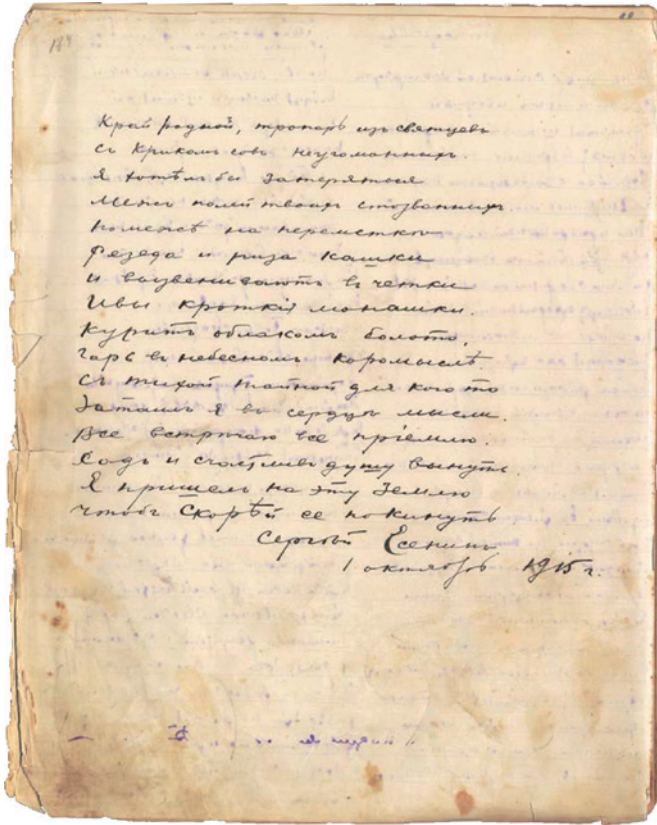 184
Край родной, тропарь изъ святцевъ
Съ крикомъ совъ неугомонныхъ
Я хотѣлъ бы затеряться
Межъ полей твоихъ стозвонныхъ
По межѣ на переметки
Резеда и риза кашки
И вызваниваютъ въ четки
Ивы кроткія монашки.
Куритъ облакомъ болото,
Гарь въ небесномъ коромыслѣ.
Съ тихой тайной для кого то
Затаилъ я въ сердцѣ мысли.
Все встрѣчаю все пріемлю.
Радъ и счастливъ душу вынуть.
Я пришелъ на эту землю
Чтобъ скорѣй ее покинуть
Сергѣй Есенинъ
1 октября 1915 г.